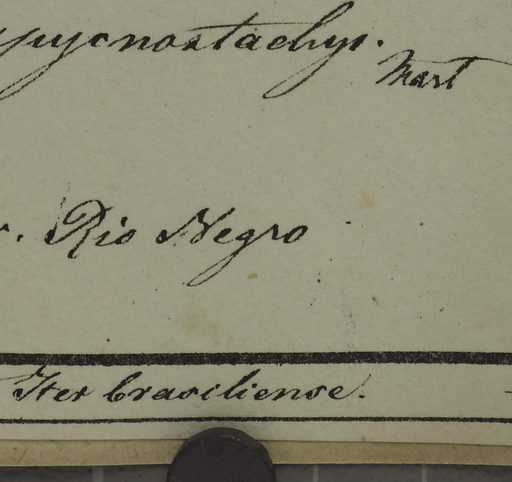 pycnostachys. Mart
Rio Negro
Iter brasiliense.